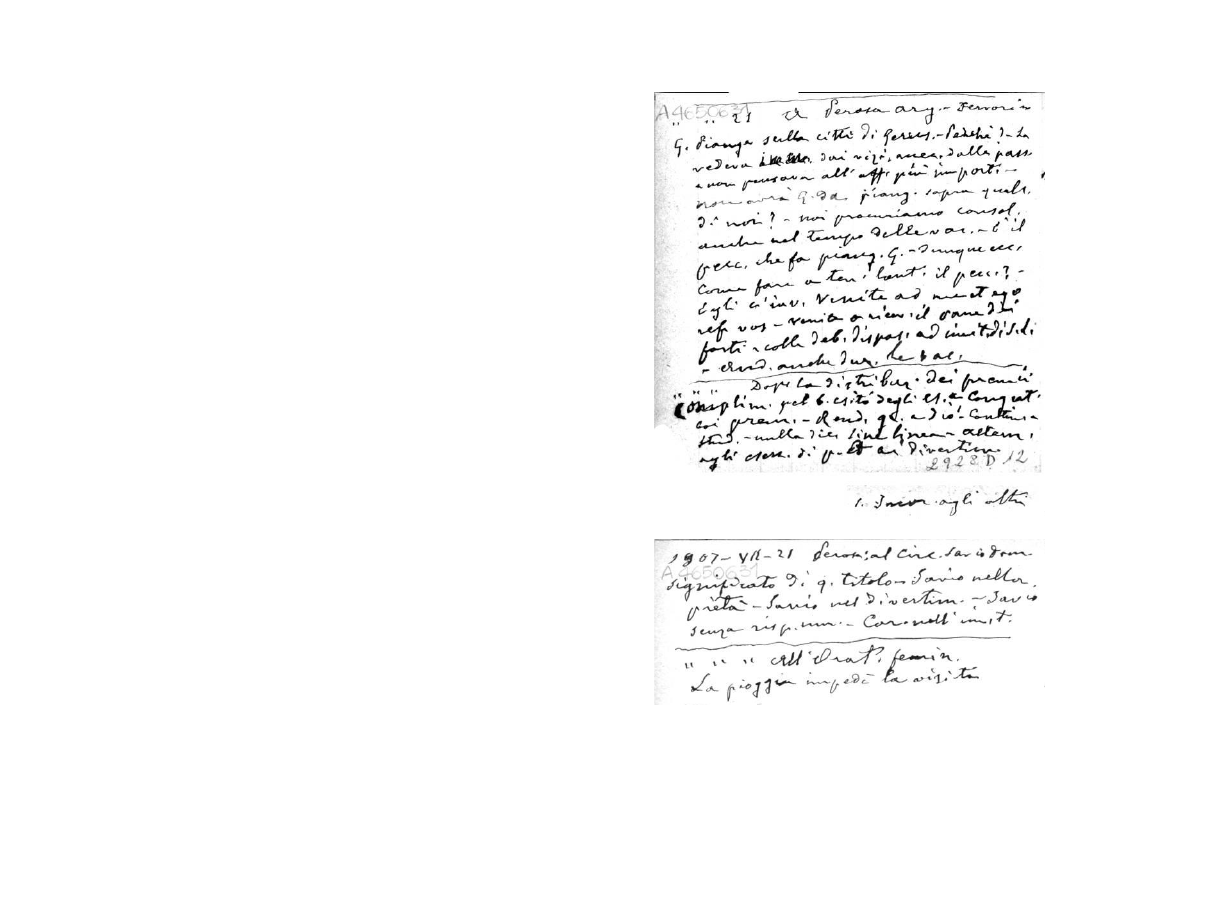 A4650631
" " 21 A Perosa Arg. - Fervorin
G. Piange sulla città di Gerus. - Perchè? - La
vedeva dai vizi, acce. dalla pass.
e non pensava all'aff. più import. -
non avrà G. da piang. sopra qualc.
di noi? - noi procuriamo consol.
anche nel tempo delle vac. - È il
pecc. che fa piang. G. - Dunque ecc.
Come fare a ten. lont. il pecc.? -
Egli ci inv. Venite ad me et ego
refi. vos - venite a ricev. il pane dei
forti - colle deb. dispos. ad
- anche dur. le vac.
" " " Dopo la distribuz. dei premii
Complim. pel b. esito degli es. e Congrat.
coi prem. - Rend. gr. a Dio - Contin. a
stud. - nulla dies sine linea - altern.
agli eserc. di p. et ai divertim.
2928 D 12
1. agli altri
1907 - VII - 21 Perosa: al Circ. Savio Dom.
A4650631
Significato di q. titolo - Savio nella
pietà - Savio nel divertim. - Savio
senza risp. um. - Cor. nell'imit.
" " " All'Orat. femin.
La pioggia impedì la visita